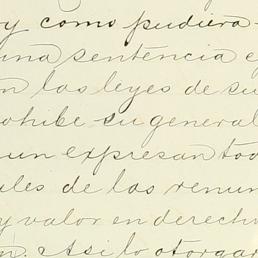 y como pudiera
una sentencia e
n las leyes de su
ohibe su general
un expresan tod
les de las renun
y valor en derech
n. Asi lo otorgar